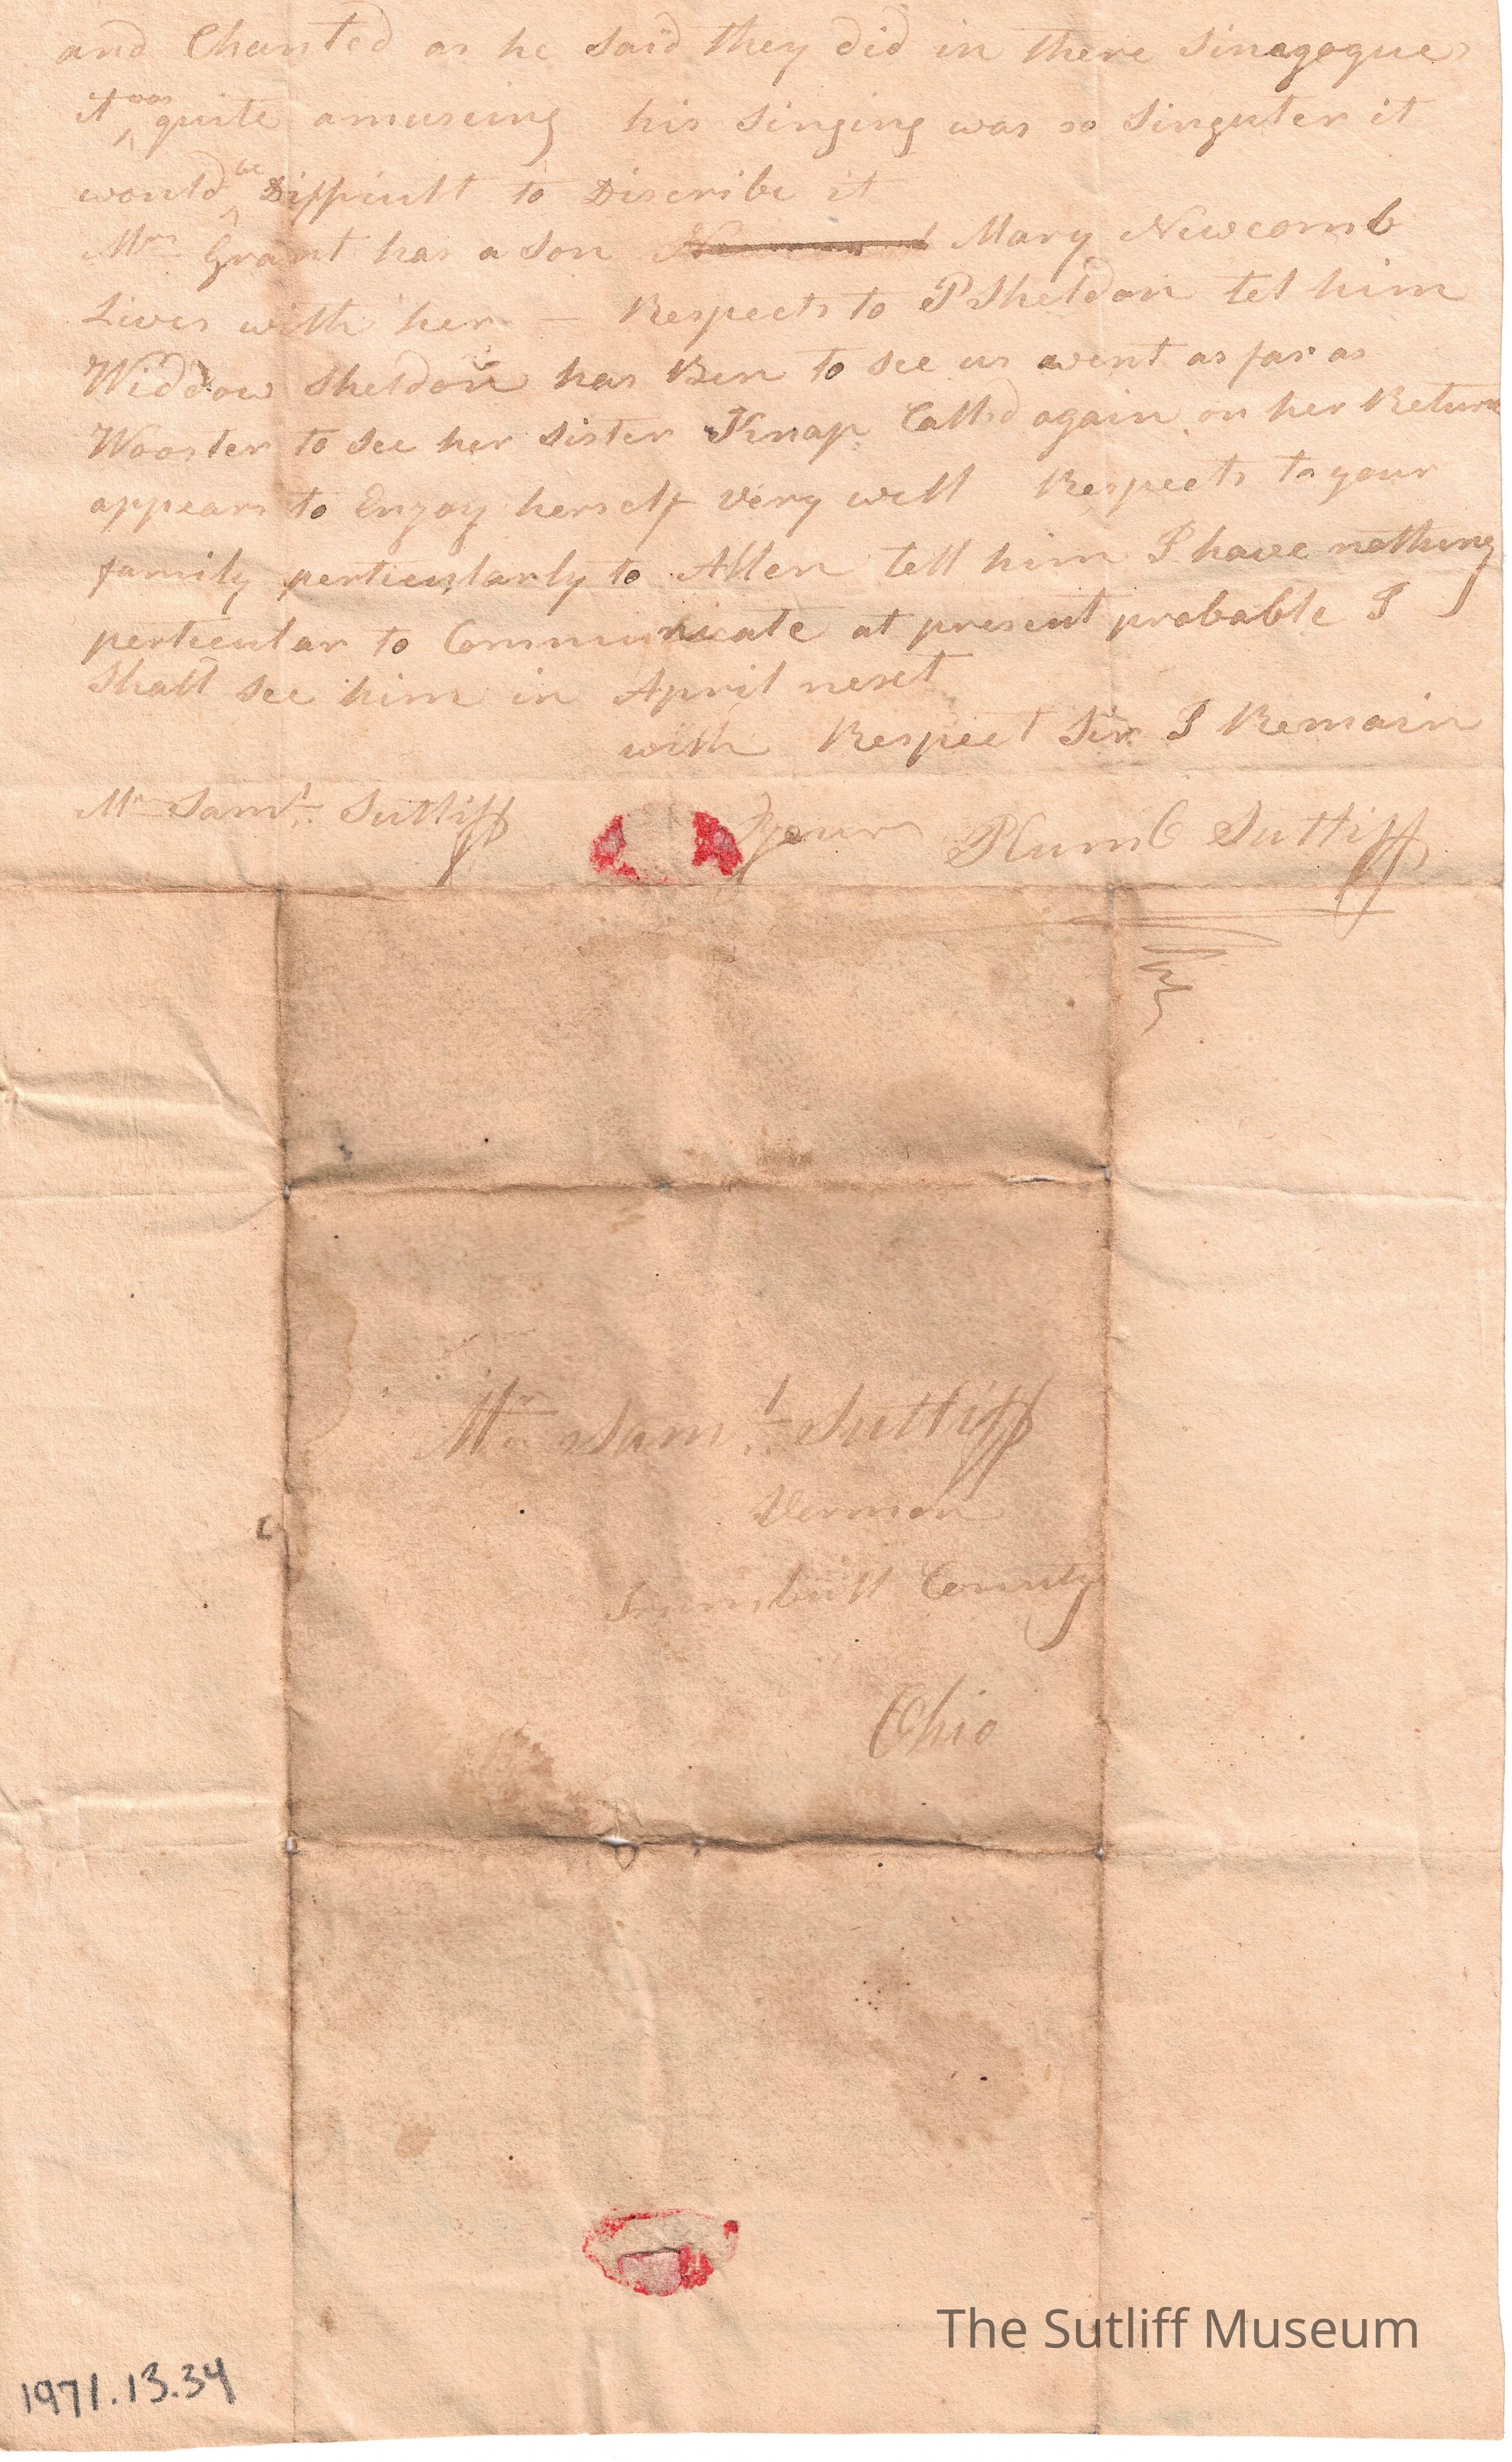 and Chanted as he said they did in there Sinagogues
it was quite amuseing his singing was so Singuler it
would be Difficult to Discribe it
Mrs Grant has a Son Mary Newcomb
Lives with her — Respects to P Sheldon tel him
Widdow Sheldon has Ben to see us went as far as
Wooster to see her sister Knap Calld again on her Return
appears to Enjoy herself very well Respects to your
family perticularly to Allen tell him I have nothing
perticular to Communicate at present probable I
Shall see him in April next
with Respect Sir I Remain
Mr Saml Sutliff yours Plumb Sutliff
Mr Saml Sutliff
Vernon
Trumbull County
Ohio
The Sutliff Museum
1971.13.34